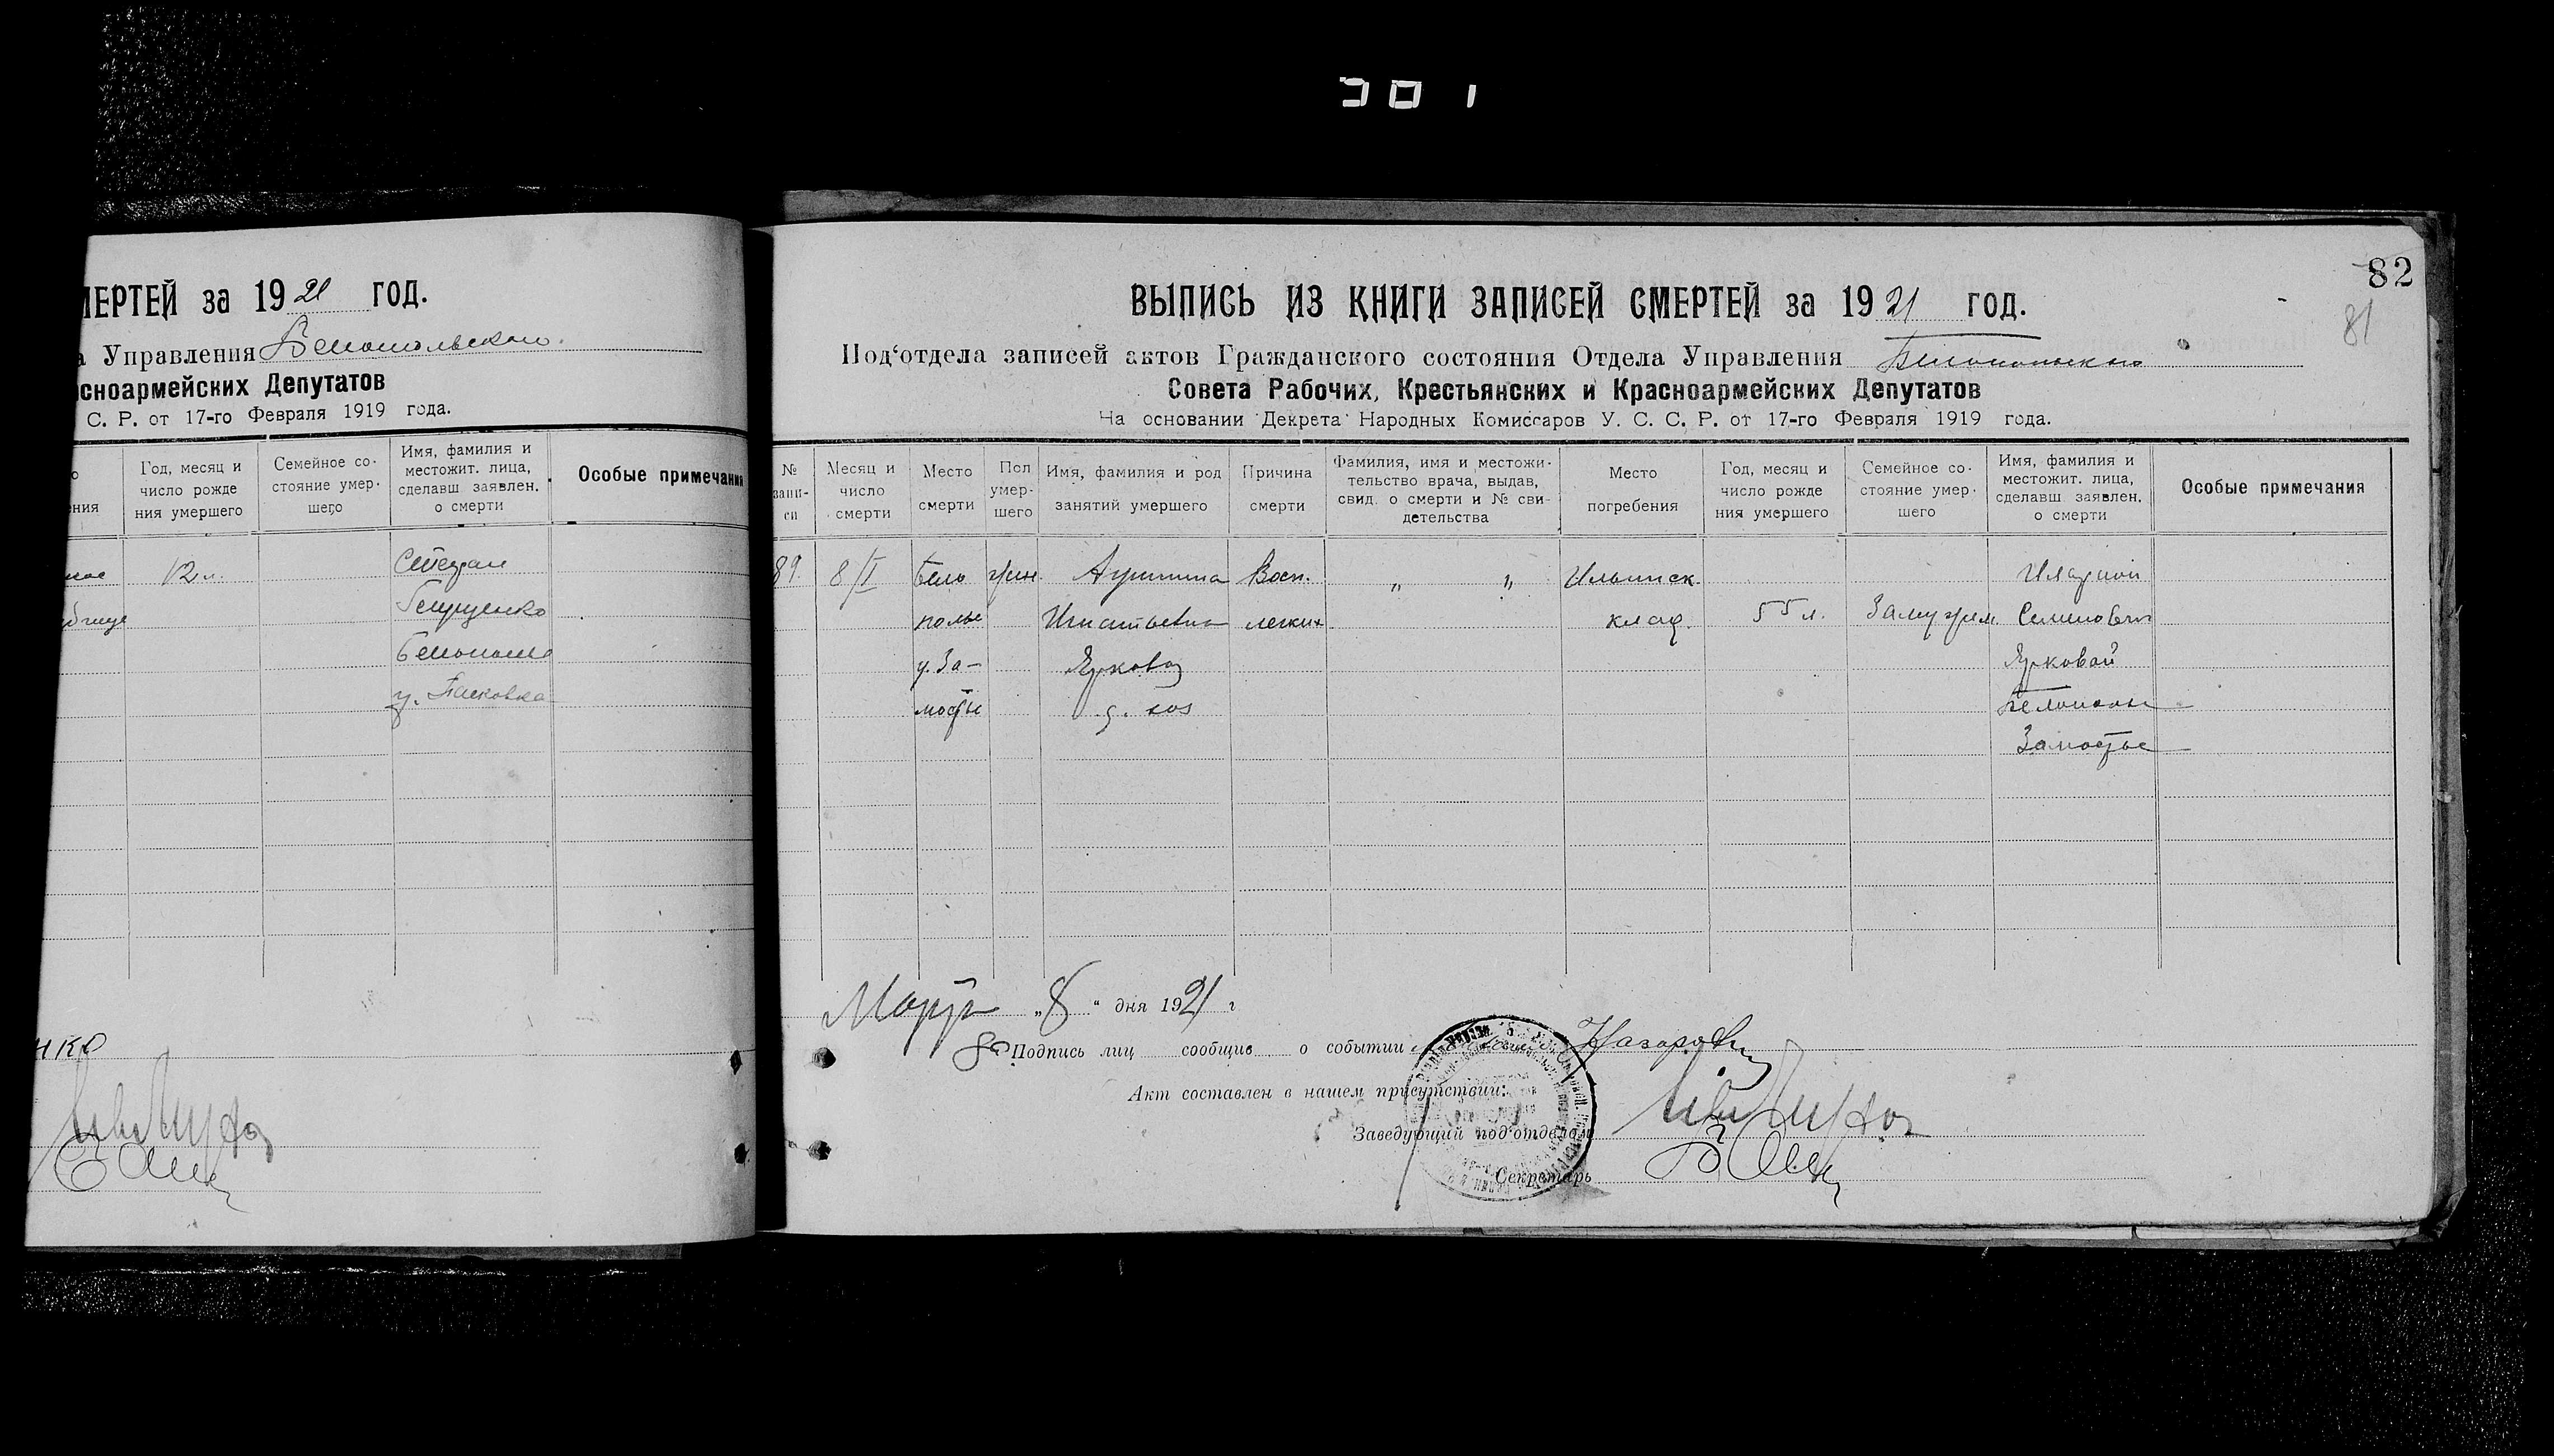 301
МЕРТЕЙ за 1921 ГОД.
а Управления Белопольского
асноармейских Депутатов
С. С. Р. от 17-го Февраля 1919 года.
Год, месяц и число рожде ния умершего
Семейное со- стояние умер- шего
Имя, фамилия и местожит. лица, сделавш заявлен. о смерти
Особые примечания
12 л.
Степан
Белополье
нко
82
81
ВЫПИСЬ ИЗ КНИГИ ЗАПИСЕЙ СМЕРТЕЙ за 1921 ГОД.
Под‘отдела записей актов Гражданского состояния Отдела Управления Белопольского
Совета Рабочих, Крестьянских и Красноармейских Депутатов
На основании Декрета Народных Комиссаров У. С. С. Р. от 17-го Февраля 1919 года.
№ запи- си
Месяц и число смерти
Место смерти
Пол умер- шего
Имя, фамилия и род занятий умершего
Причина смерти
Фамилия, имя и местожи- тельство врача, выдав, свид. о смерти и № сви- детельства
Место погребения
Год, месяц и число рожде ния умершего
Семейное со- стояние умер- шего
Имя, фамилия и местожит. лица, сделавш. заявлен. о смерти
Особые примечания
89. 8/I Бело жен. Восп. " " Ильинск.
полье Игнатьевна легких клад. 55 л. Замужем Семенович
у. За- Яркова Яркован
мостье д. хоз Белополье
Замостье
Март „8“ дня 1921 г
Подпись лиц сообщив о событии Назаров
Акт составлен в нашем присутствии:
Заведующий под‘отделом
Секретарь